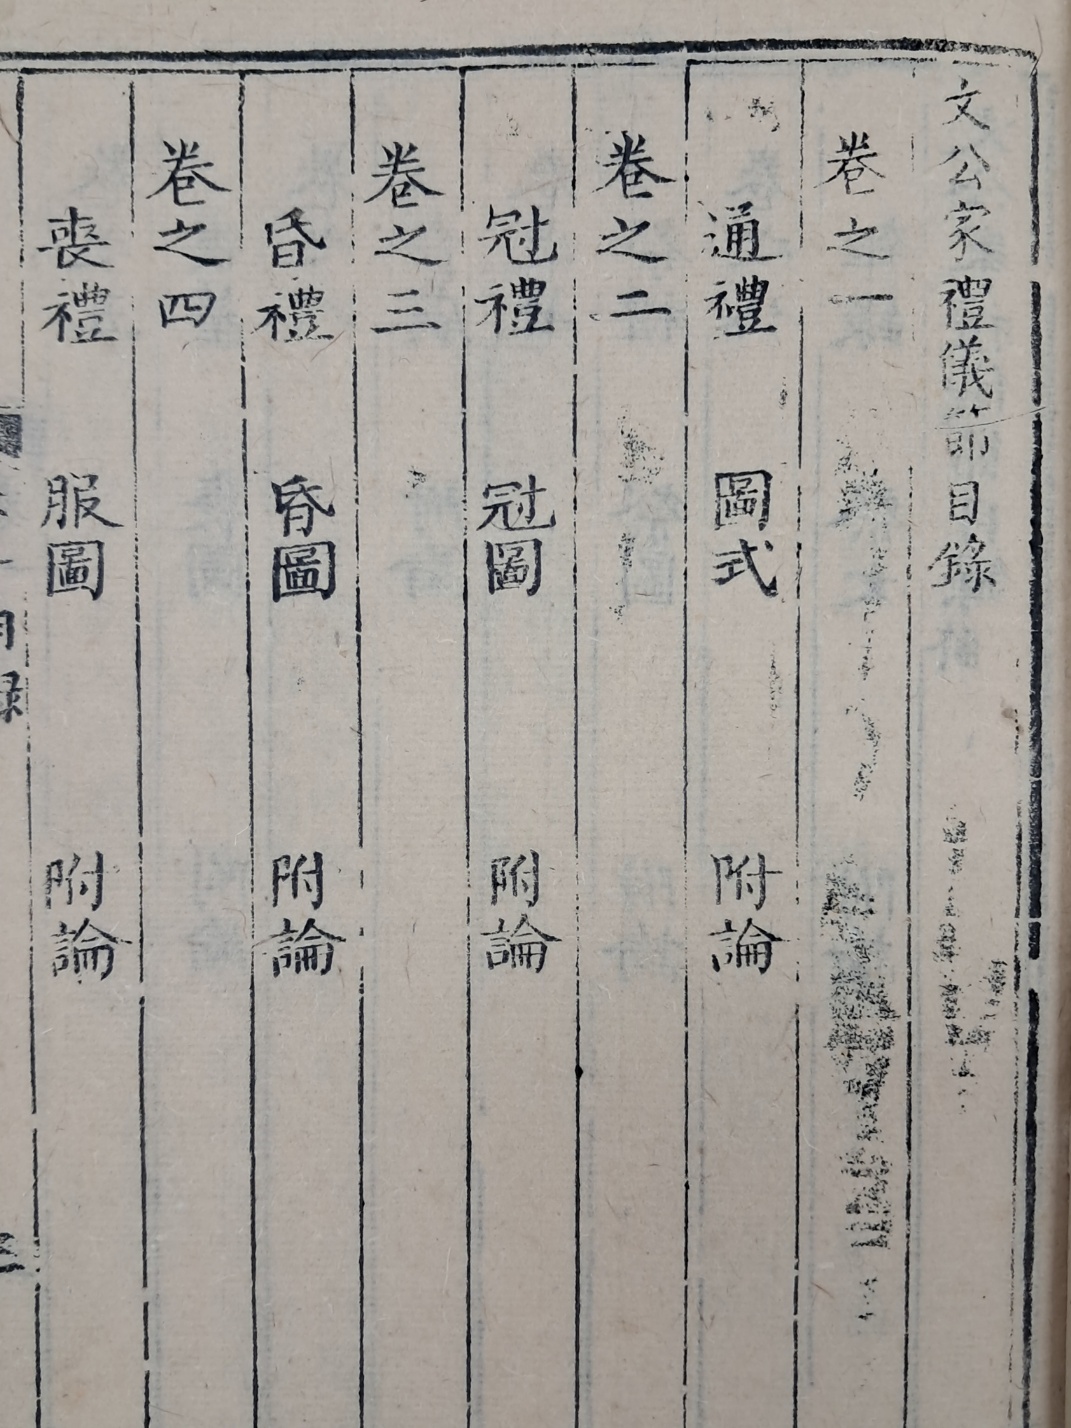 文公家禮儀節目錄
卷之一
通禮 圖式 附論
卷之二
冠禮 冠圖 附論
卷之三
昏禮 昏圖 附論
卷之四
喪禮 服圖 附論
目録